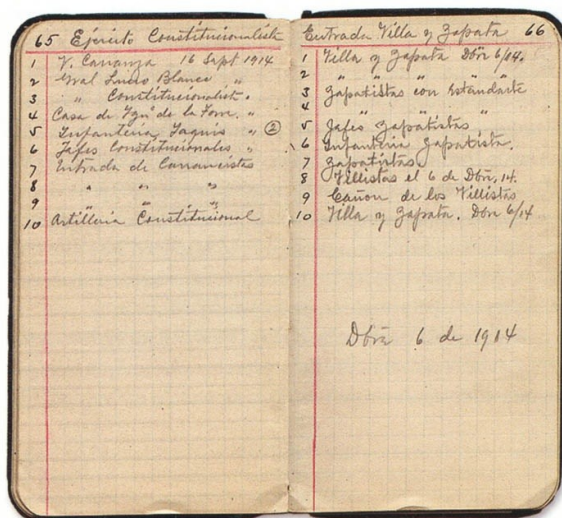 65 Ejército Constitucionalista
1 V. Carranza 16 Sept 1914
2 Gral Lucio Blanco "
3 " Constitucionalist. "
4 Casa de Ygn de la Torre. "
5 Infanteria Yaquis " (2)
6 Jefes Constitucionales "
7 Entrada de Carrancistas
8 " " "
9 " "
10 Artilleria Constitucional
Entrada Villa y Zapata 66
1 Villa y Zapata Dbre 6/14.
2 " " " "
3 Zapatistas con Estandarte
4 " "
5 Jefes Zapatistas
6 Infanteria Zapatista.
7 Zapatistas
8 Villistas el 6 de Dbre, 14.
9 Cañon de los Villistas
10 Villa y Zapata. Dbre 6/14
Dbre 6 de 1914